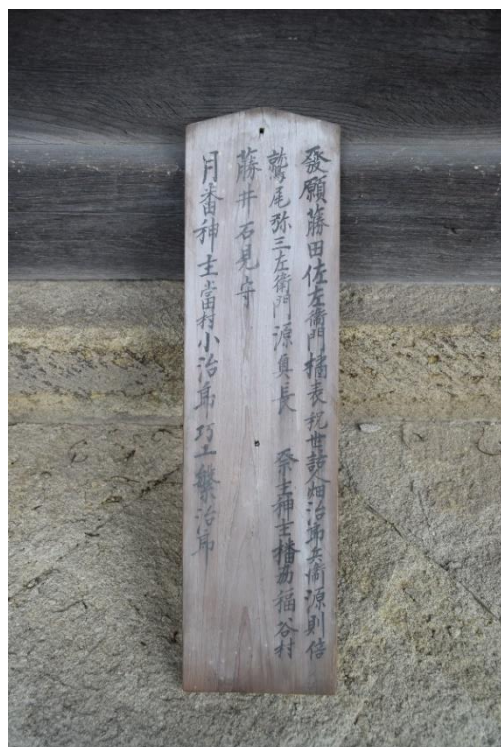 發願藤田佐左衛門橘表祝世話人畑治郎兵衛源則信
鷲尾弥三左衛門源真長 祭主神主播磨福谷村
藤井石見守
月番神主當村小治郎巧工繁治郎